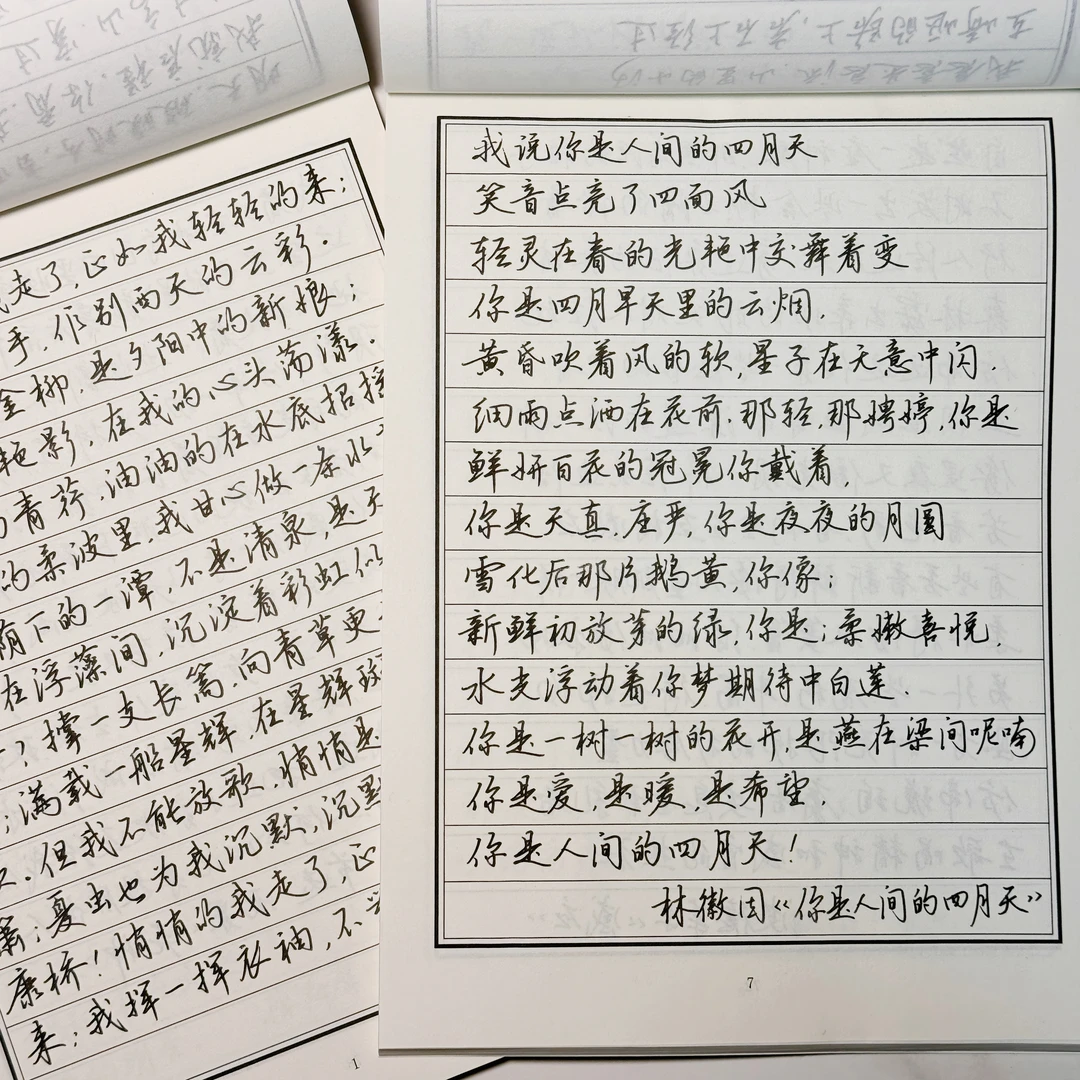 走了,正如我轻轻的来;
手,作别西天的云彩.
金柳,是夕阳中的新娘;
艳影,在我的心头荡漾.
青荇,油油的在水底招摇
的柔波里,我甘心做一条水
荫下的一潭,不是清泉,是天
在浮藻间,沉淀着彩虹似
?撑一支长篙,向青草更
;满载一船星辉,在星辉
.但我不能放歌,悄悄是
箫;夏虫也为我沉默,沉默
康桥!悄悄的我走了,正
来;我挥一挥衣袖,不
1
我说你是人间的四月天
笑音点亮了四面风
轻灵在春的光艳中交舞着变
你是四月早天里的云烟,
黄昏吹着风的软,星子在无意中闪.
细雨点洒在花前.那轻,那娉婷,你是
鲜妍百花的冠冕你戴着,
你是天真,座严,你是夜夜的月圆
雪化后那片鹅黄,你像;
新鲜初放芽的绿,你是;柔嫩喜悦,
水光浮动着你梦期待中白莲.
你是一树一树的花开,是燕在梁间呢喃
你是爱,是暖,是希望,
你是人间的四月天!
林徽因《你是人间的四月天》
7